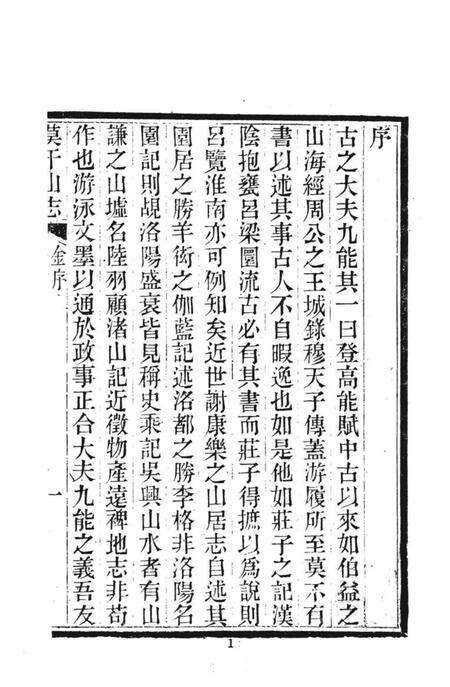 序
古之大夫九能其一曰登高能賦中古以來如伯益之
山海經周公之王城錄穆天子傳蓋游履所至莫不有
書以述其事古人不自暇逸也如是他如莊子之記漢
陰抱甕呂梁圜流古必有其書而莊子得摭以爲說則
呂覽淮南亦可例知矣近世謝康樂之山居志自述其
園居之勝羊衒之伽藍記述洛都之勝李格非洛陽名
園記則覘洛陽盛衰皆見稱史乘記吳興山水者有山
謙之山墟名陸羽顧渚山記近徵物產遠裨地志非苟
作也游泳文墨以通於政事正合大夫九能之義吾友
莫干山志 金序 一
1